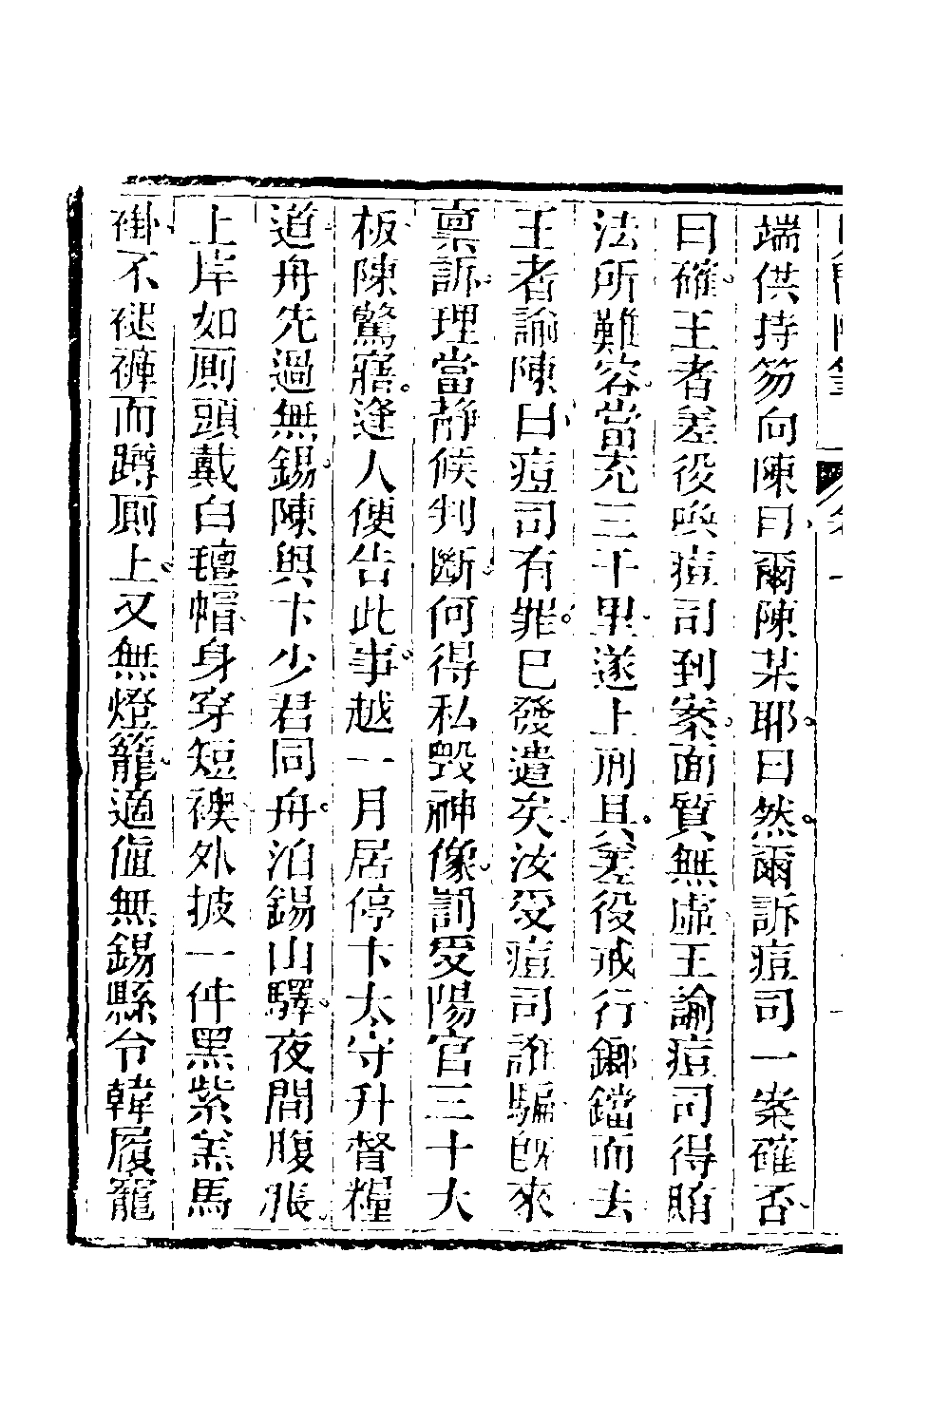 端供持笏向陳曰爾陳某耶曰然爾訴痘司一案確否
曰確王者差役喚痘司到案面質無虛王諭痘司得賄
法所難容當充三千里遂上刑具差役戒行鎯鐺而去
王者諭陳曰痘司有罪已發遣矣汝受痘司誆騙旣來
禀訴理當靜候判斷何得私毀神像罰受陽官三十大
板陳驚寤逢人便告此事越一月居停卞太守升督糧
道舟先過無錫陳與卞少君同舟泊錫山驛夜間腹脹
上岸如厠頭戴白氊帽身穿短襖外披一件黑紫羔馬
褂不褪褲而蹲厠上又無燈籠適値無錫縣令韓履寵